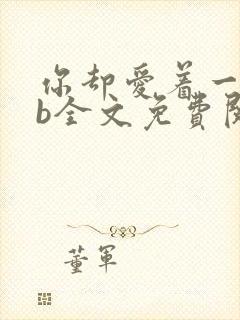 你却爱着一
b全文免费阅
董军